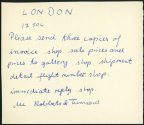 LONDON
12 504
Please send three copies of
invoice shop sale prices and
prices to gallery shop shipment
detail flight number shop
immediate reply shop
Mc Roberts &